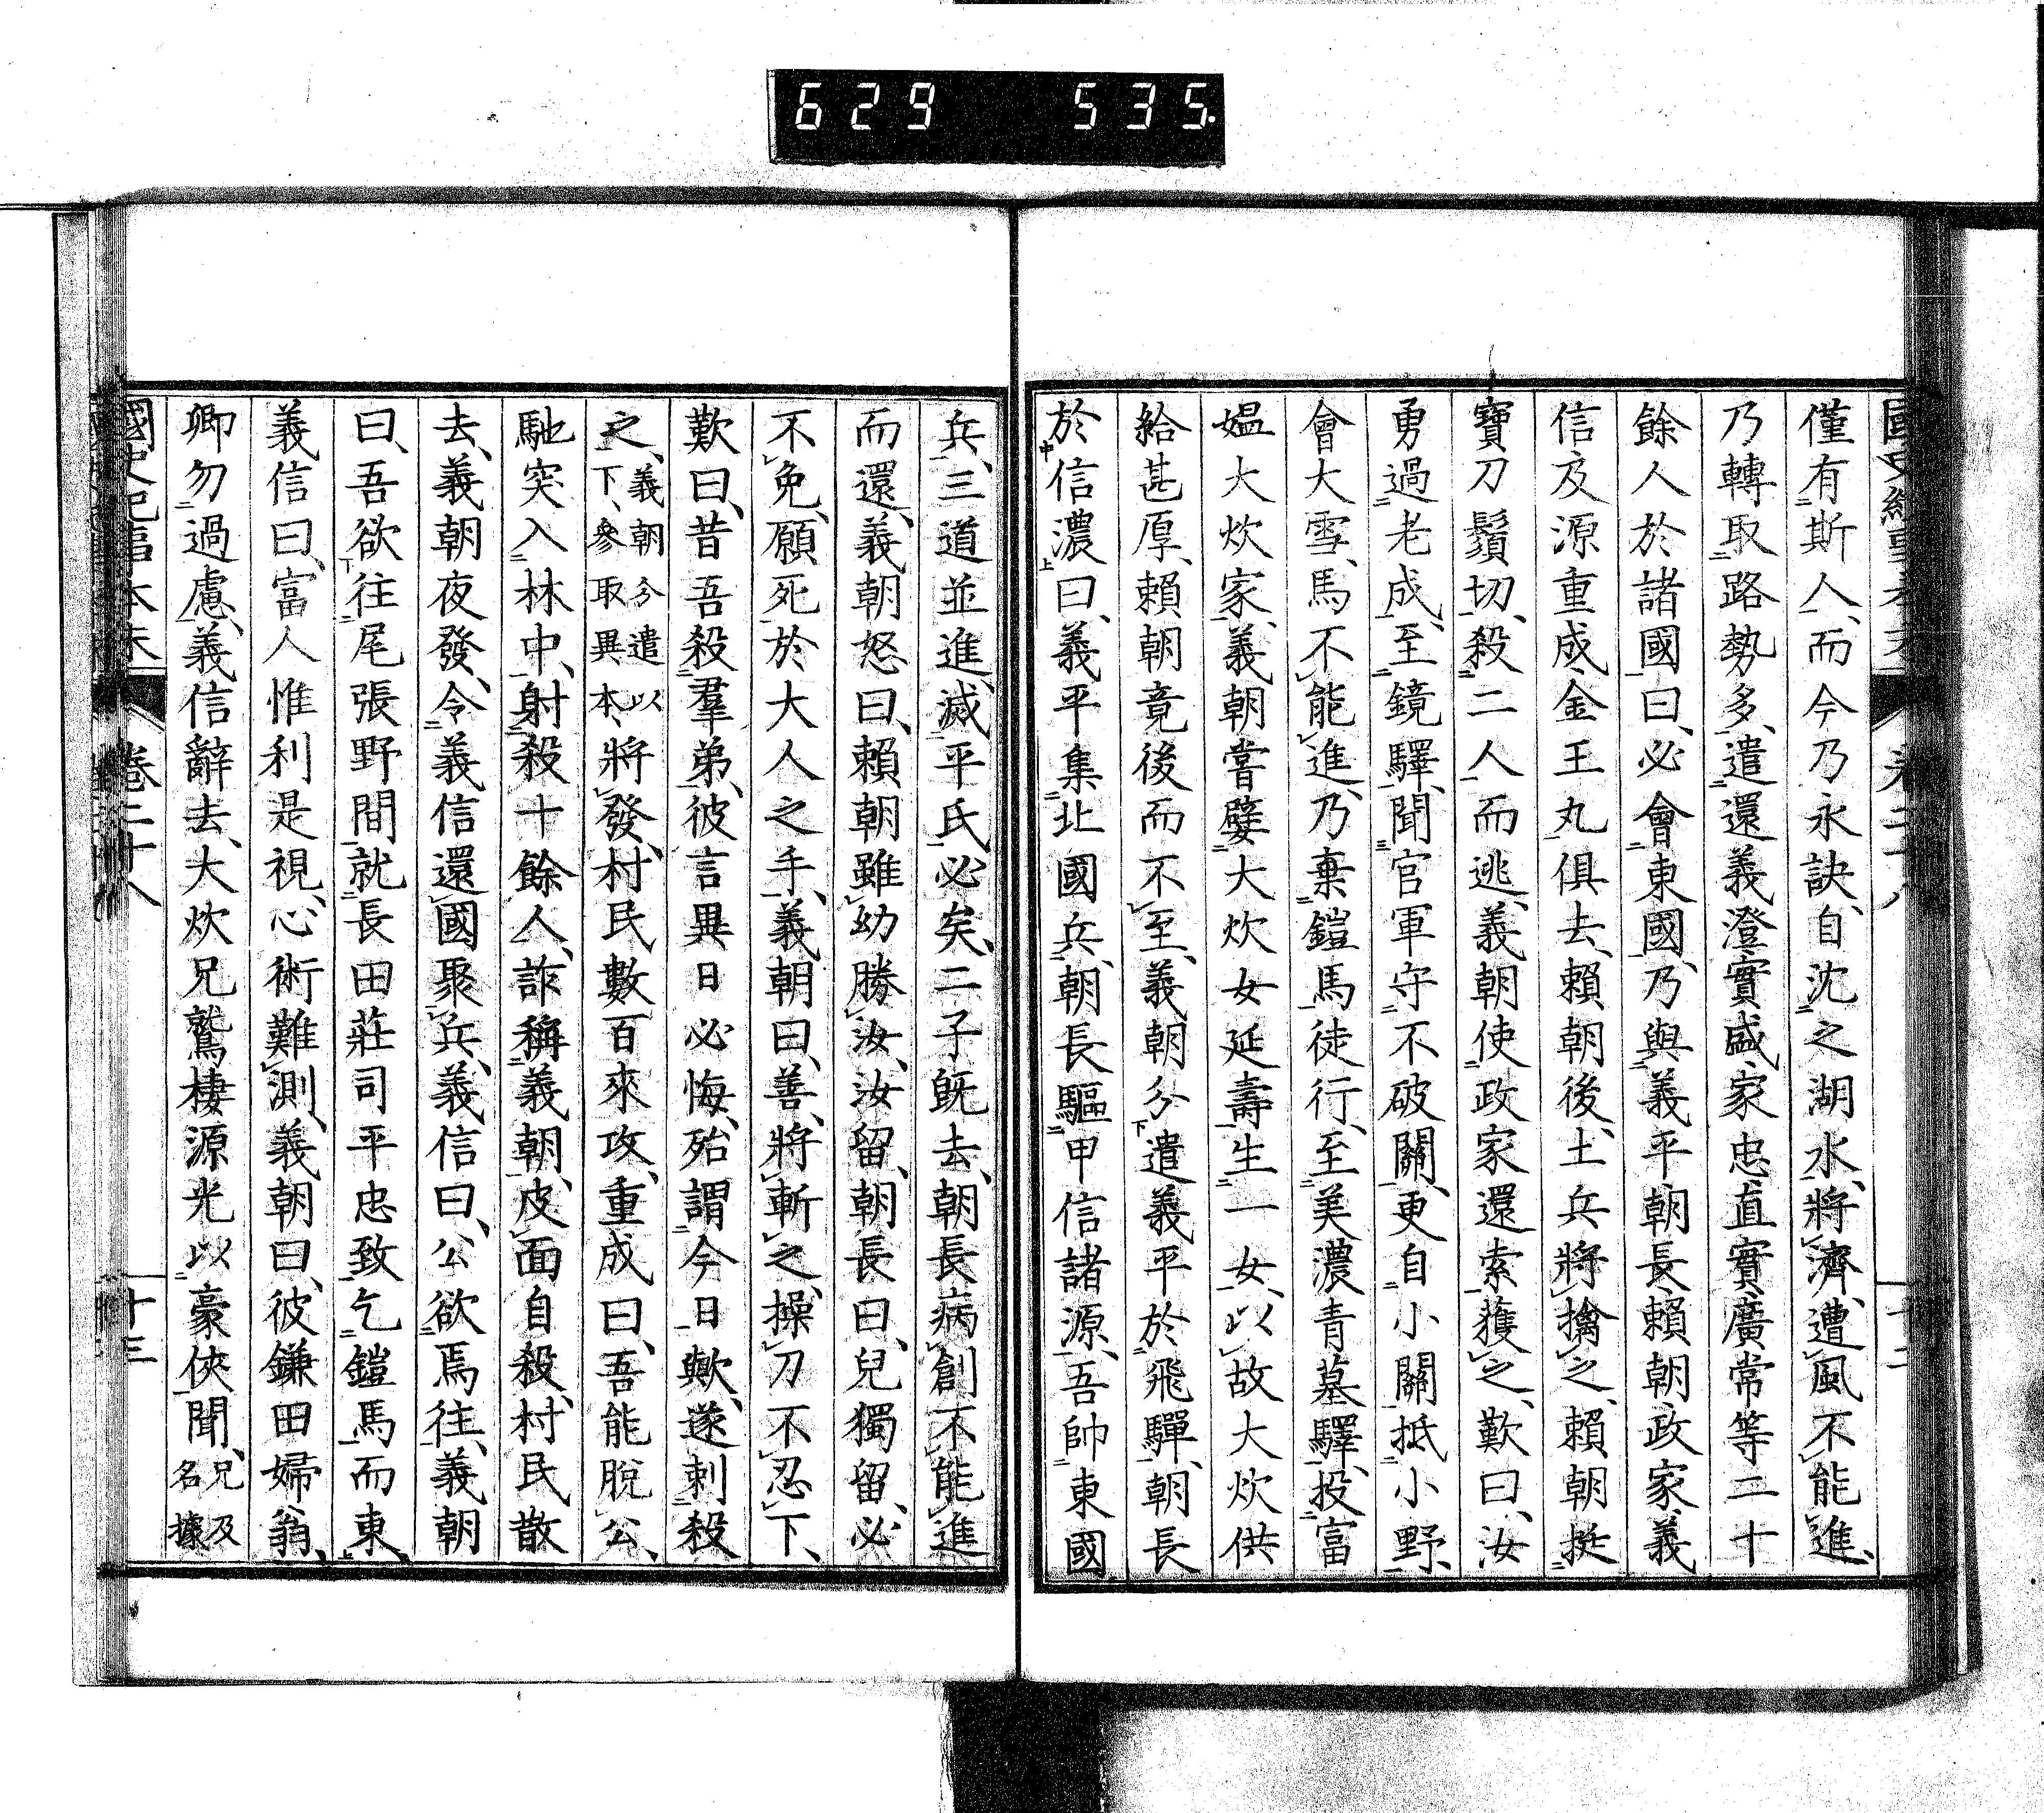 629 535.
僅有斯人、而今乃永訣、自沈之湖水、將濟、遭風不能進、
乃轉取路勢多、遣還義澄實盛家忠直實廣常等二十
餘人於諸國曰、必會東國、乃與義平朝長賴朝政家義
信及源重成、金王丸俱去、賴朝後、土兵將擒之、賴朝挺
寶刀鬚切、殺二人而逃、義朝使政家還索獲之、歎曰、汝
勇過老成、至鏡驛、聞官軍守不破關、更自小關抵小野、
會大雪、馬不能進、乃棄鎧馬徒行、至美濃青墓驛、投富
媼大炊家、義朝嘗嬖大炊女延壽、生一女、以故大炊供
給甚厚、賴朝竟後而不至、義朝分遣義平於飛驒、朝長
於信濃曰、義平集北國兵、朝長驅甲信諸源、吾帥東國
兵、三道並進、滅平氏必矣、二子既去、朝長病創不能進
而還、義朝怒曰、賴朝雖幼勝汝、汝留、朝長曰、兒獨留、必
不免、願死於大人之手、義朝曰、善、將斬之、操刀不忍下、
歎曰、昔吾殺羣弟、彼言異日必悔、殆謂今日歟、遂刺殺
之、義朝分遣以下、參取異本、將發、村民數百來攻、重成曰、吾能脫公、
馳突入林中、射殺十餘人、詐稱義朝、皮面自殺、村民散
去、義朝夜發、令義信還國聚兵、義信曰、公欲焉往、義朝
曰、吾欲往尾張野間、就長田莊司平忠致、乞鎧馬而東、
義信曰、富人惟利是視、心術難測、義朝曰、彼鎌田婦翁、
卿勿過慮、義信辭去、大炊兄鷲棲源光以豪俠聞、兄及名據
國史紀事本末 卷二十八 十三